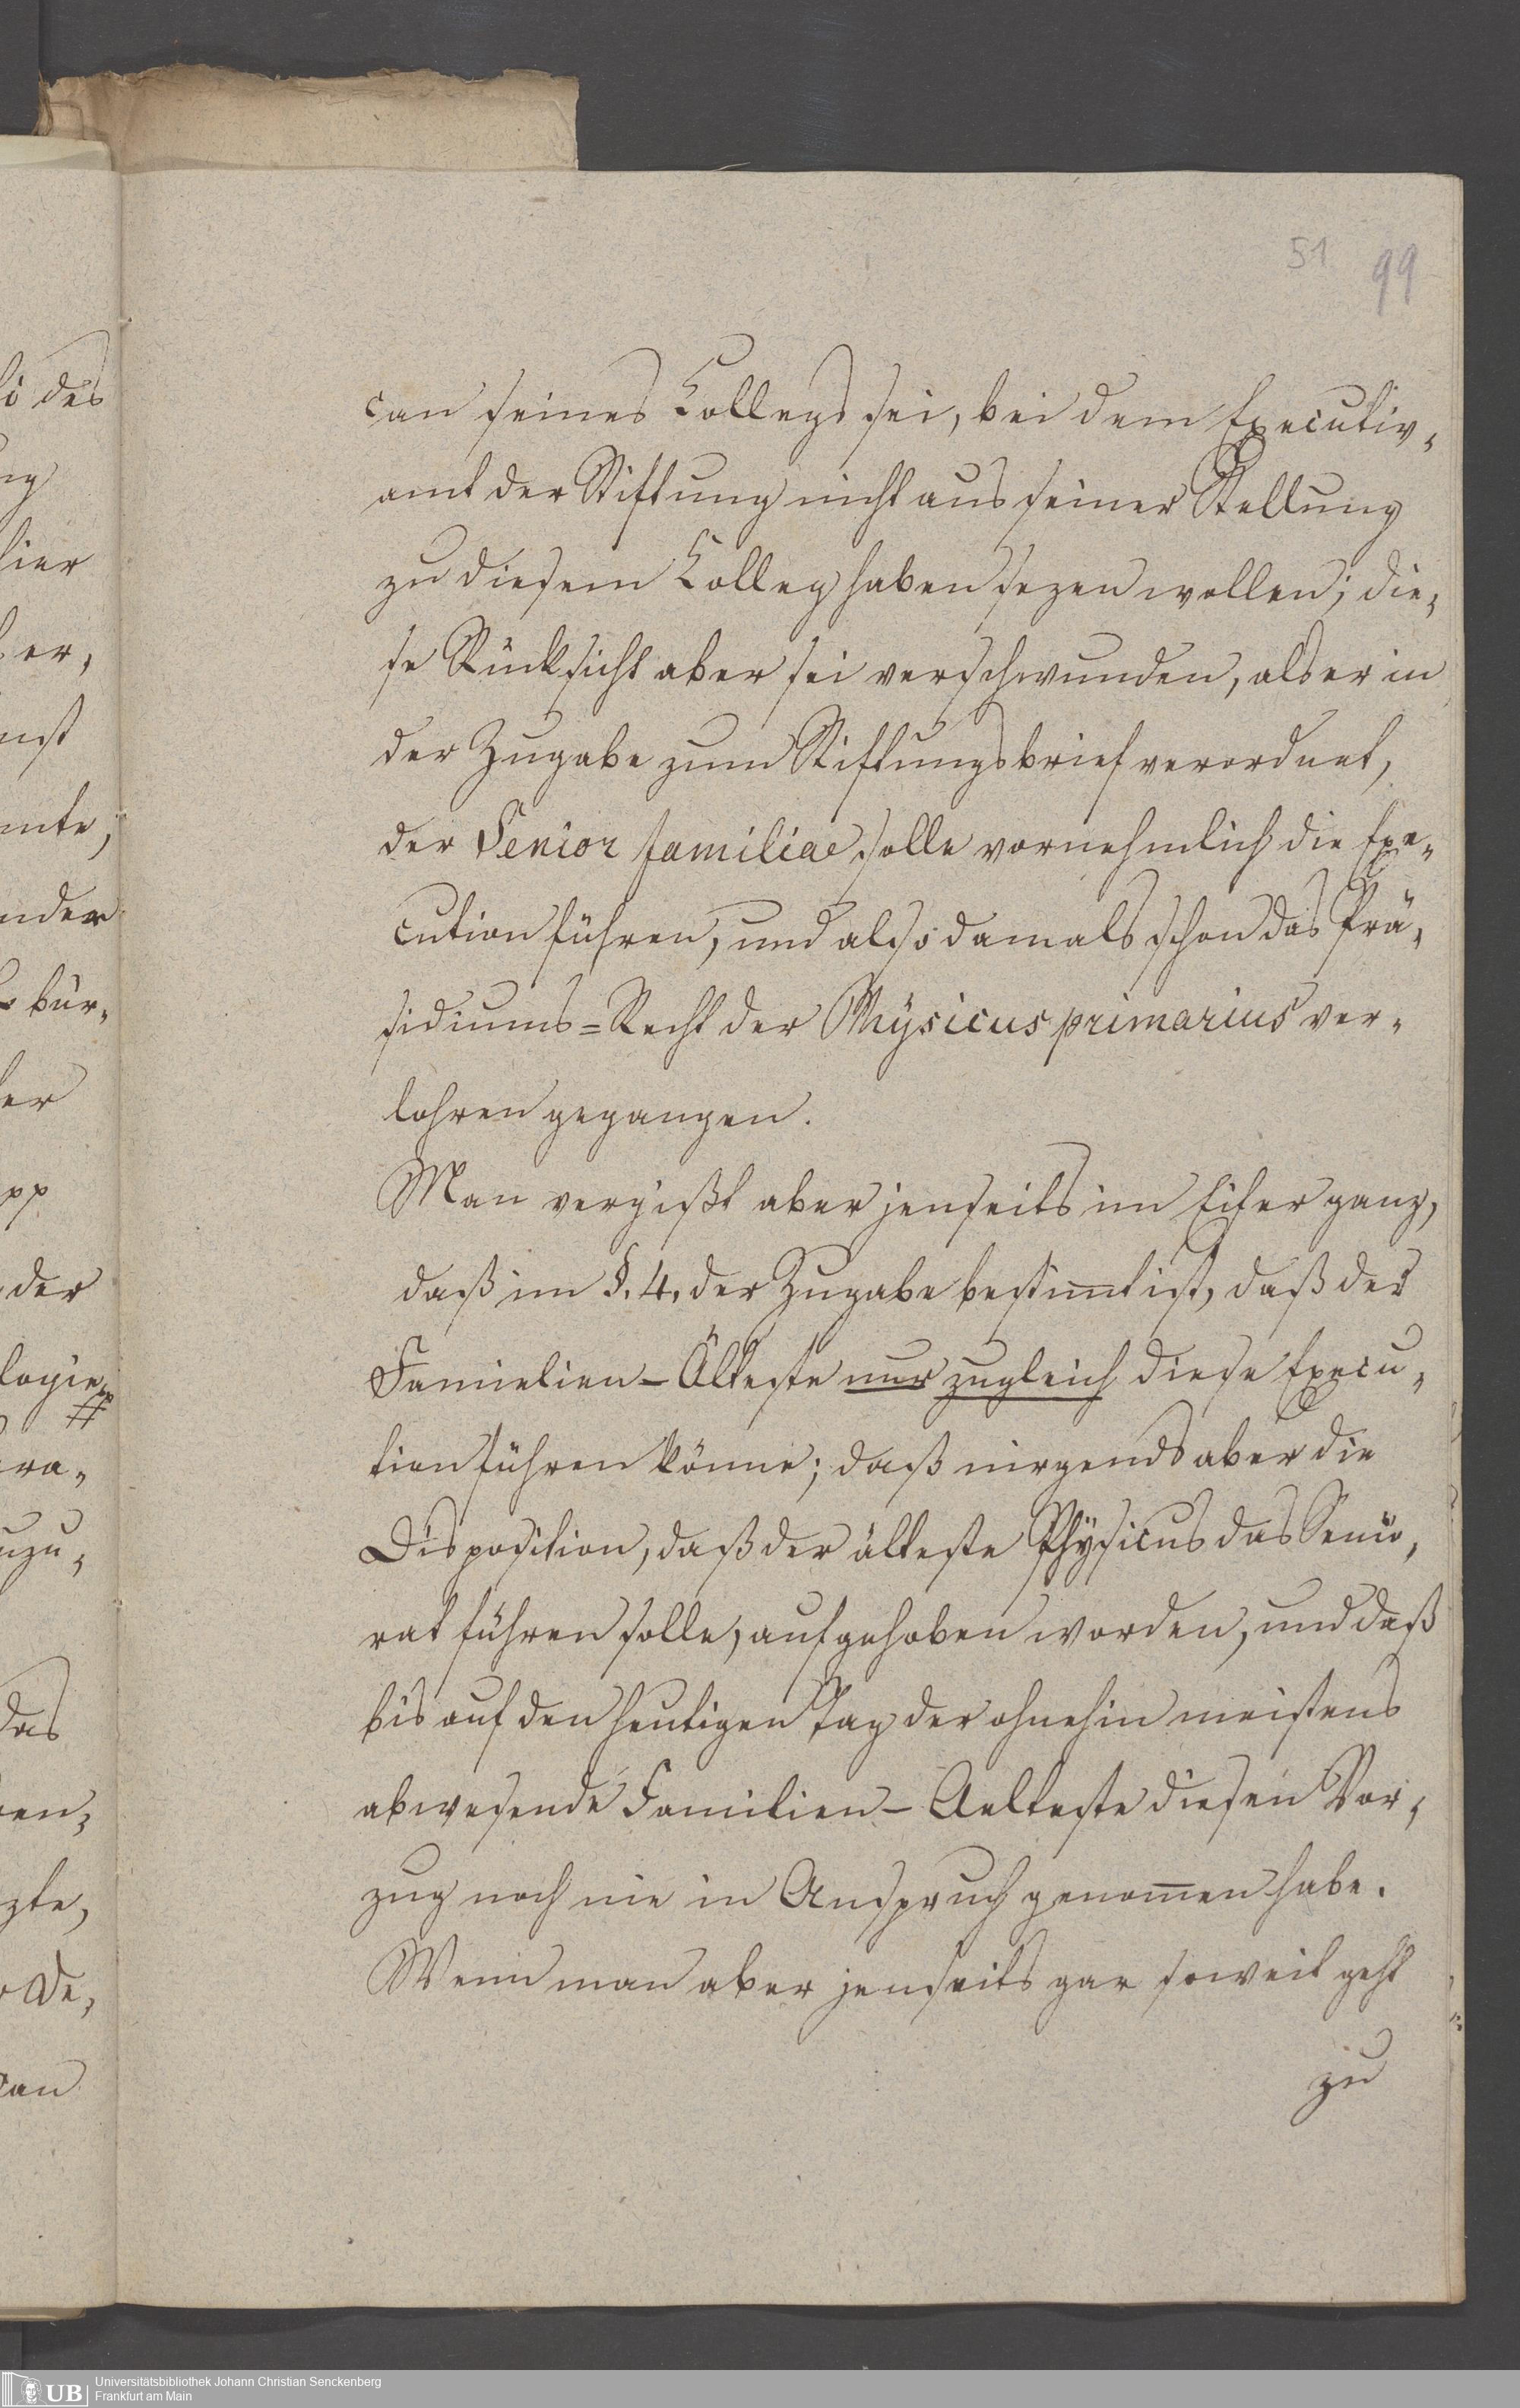 51 99
can seines Collegs sei, bei dem Executiv,
amt der Stiftung nicht aus seiner Stellung
zu diesem Colleg haben sezen wollen; die,
se Rücksicht aber sei verschwunden, als er in
der Zugabe zum Stiftungsbrief verordnet,
der Senior familiae solle vornehmlich die Exe,
cution führen, und also damals schon das Prä,
sidiums=Recht der Physicus primarius ver,
lohren gegangen.
Man vergißt aber jenseits im Eifer ganz,
daß im §. 4. der Zugabe bestimt ist, daß der
Famielien-Älteste nur zugleich diese Execu,
tion führen könne; daß nirgends aber die
Disposition, daß der älteste Physicus das Senio,
rat führen solle, aufgehoben worden, und daß
bis auf den heutigen Tag der ohnehin meistens
abwesende Familien-Aelteste diesen Vor,
zug noch nie in Anspruch genomen habe.
Wenn man aber jenseits gar soweit geht
zu
UB Universitätsbibliothek Johann Christian Senckenberg
Frankfurt am Main